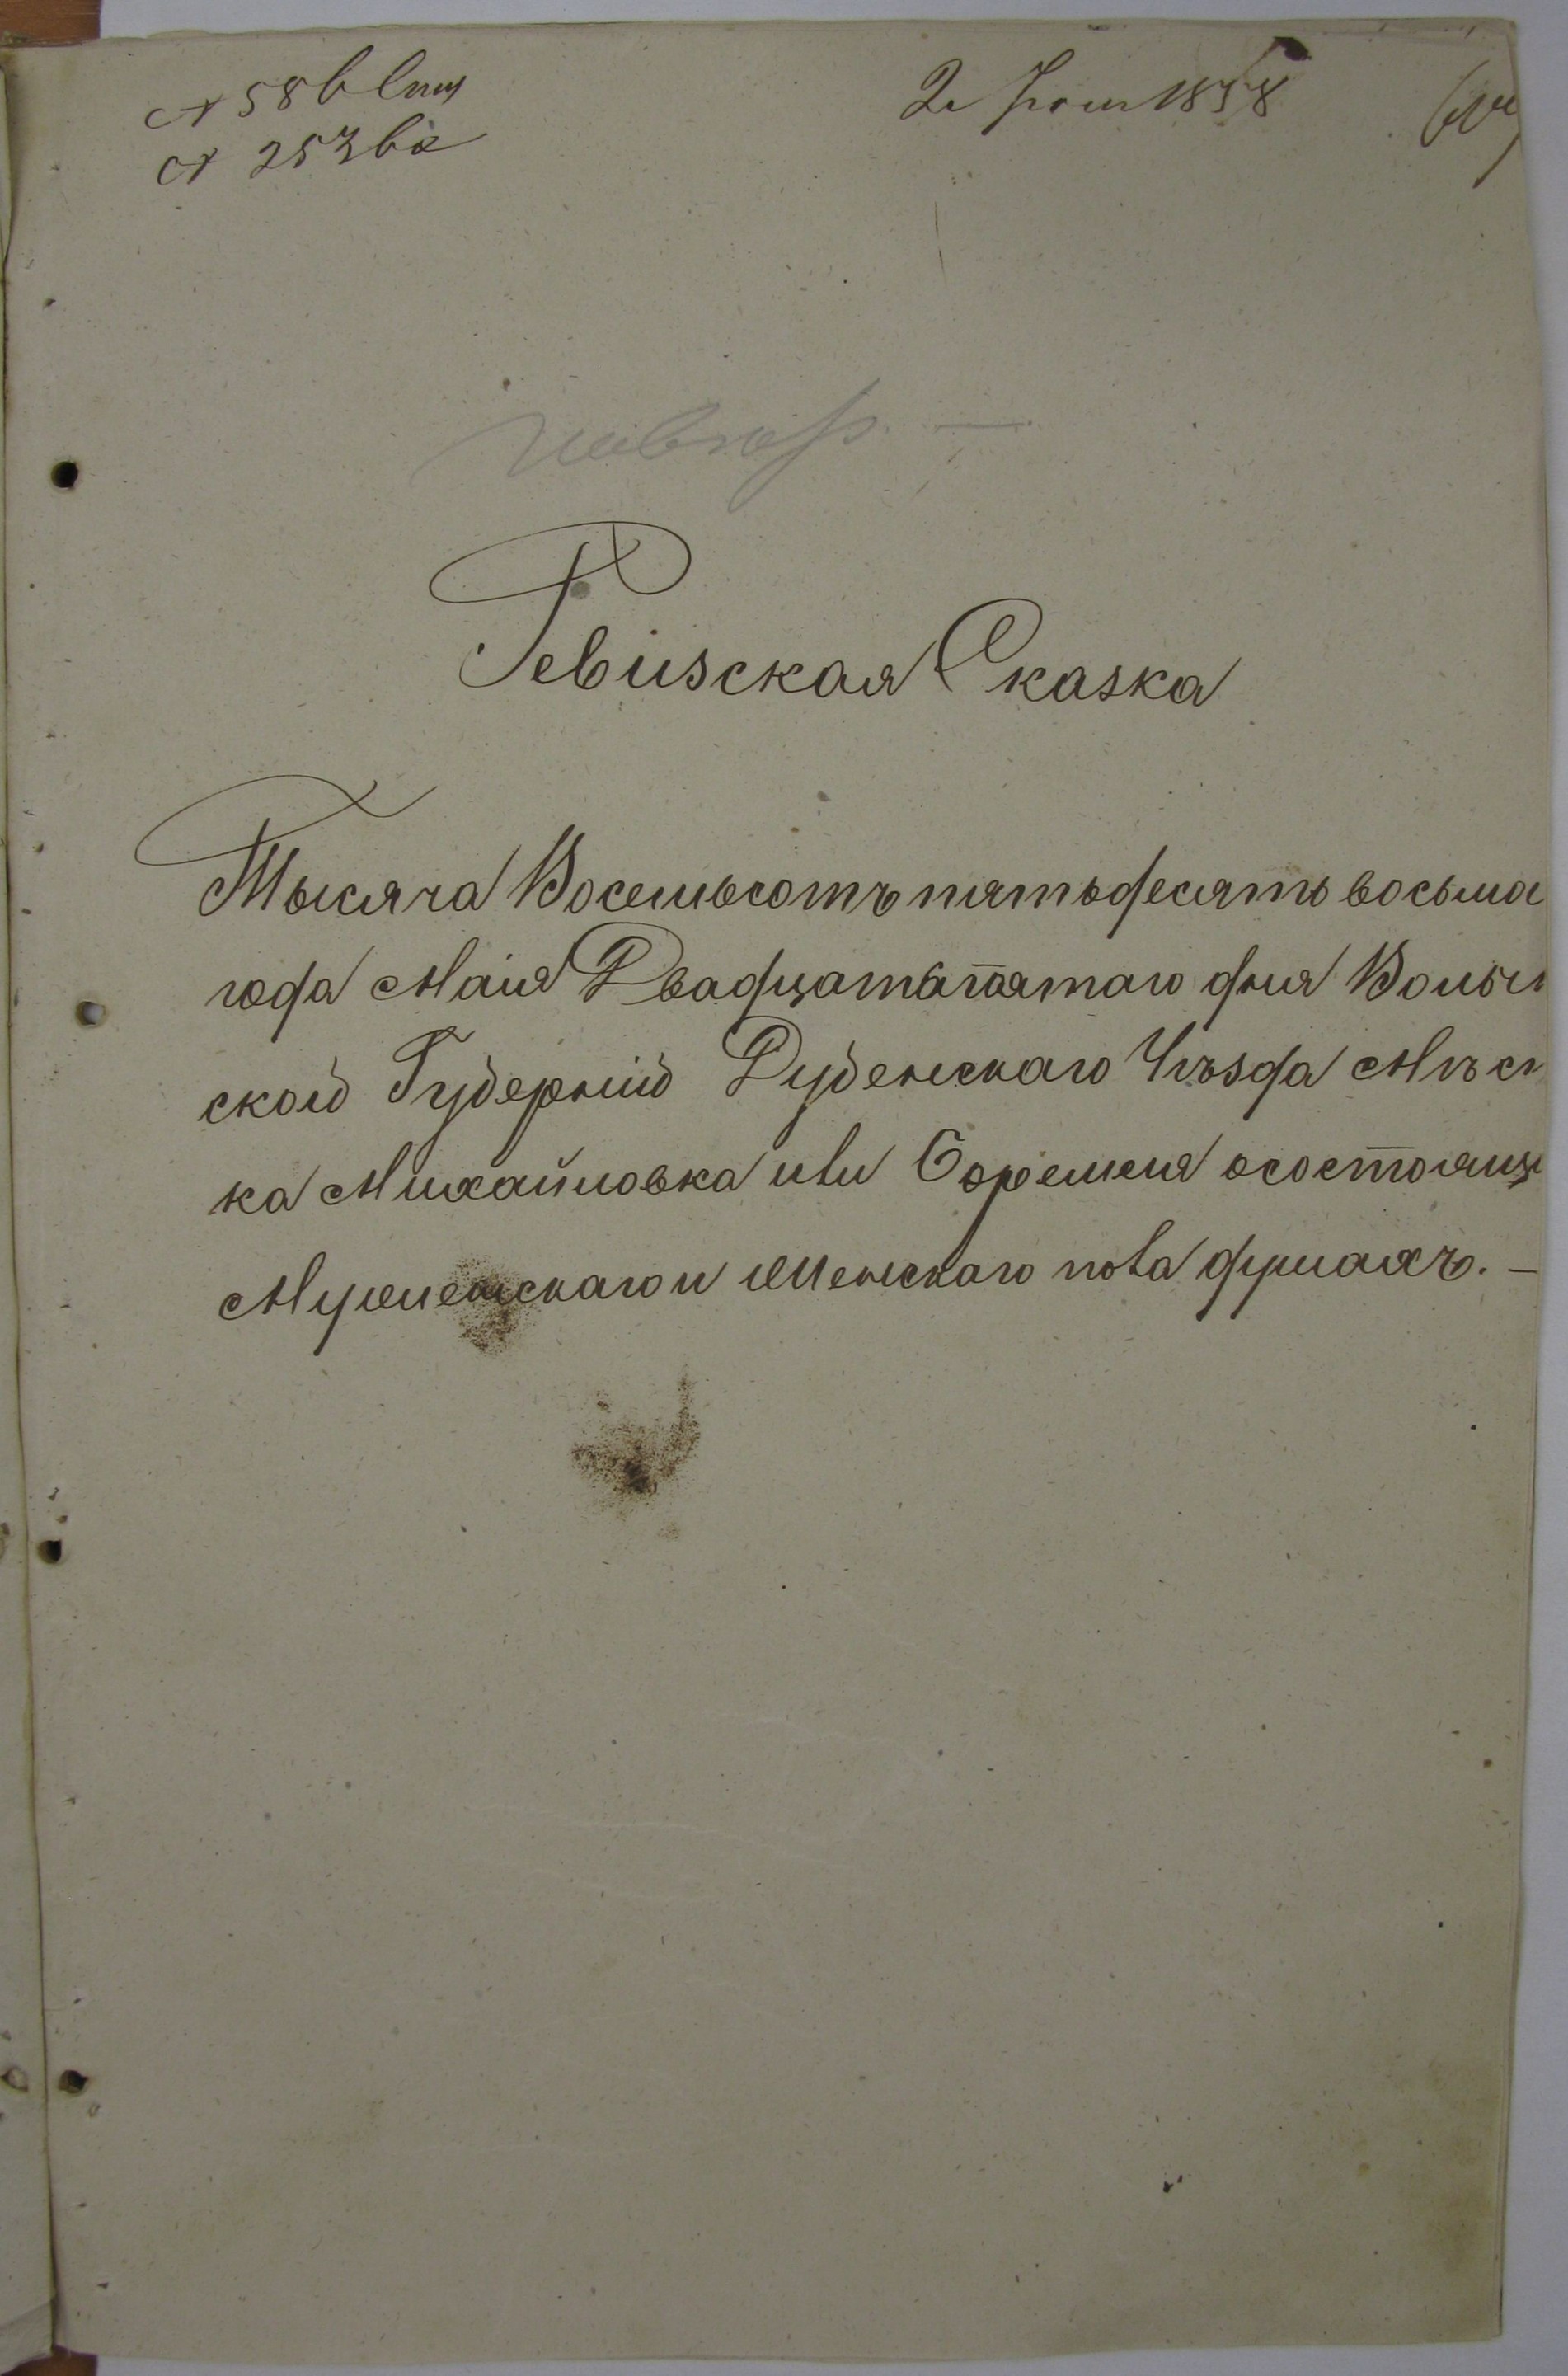 № 58
№ 253
2 Іюня 1858
Ревизская Сказка
Тысяча Восемьсотъ пятьдесятъ восьма
года Маія Двадцать пятаго дня Волын
ской Губерніи Дубенскаго Уѣзда Мѣст
ка Михайловка или осостоящи
Мужескаго и Женскаго пола душахъ. —